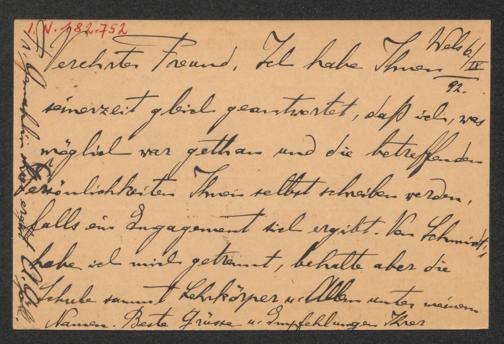 I. N. 182.752
Wels 6/IV
92.
Verehrter Freund, Ich habe Ihnen
seinerzeit gleich geantwortet, daß ich, was
möglich war gethan und die betreffenden
Persönlichkeiten Ihnen selbst schreiben werden,
falls ein Engagement sich ergibt. Von Schmidt
habe ich mich getrennt, behalte aber die
Schule sammt Lehrkörper u. Allem unter meinem
Namen. Beste Grüsse u. Empfehlungen Ihrer